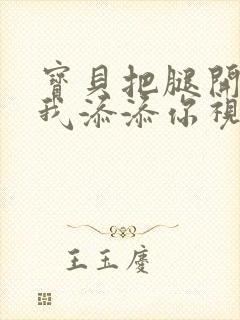 寶貝把腿開
我添添你視
王玉慶